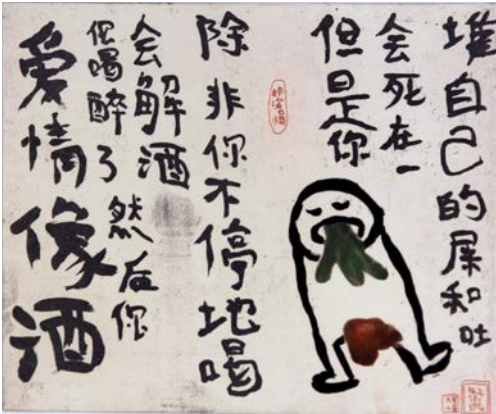 爱情像酒
你喝醉了然后你
会解酒
除非你不停地喝
但是你
会死在一
堆自己的屎和吐